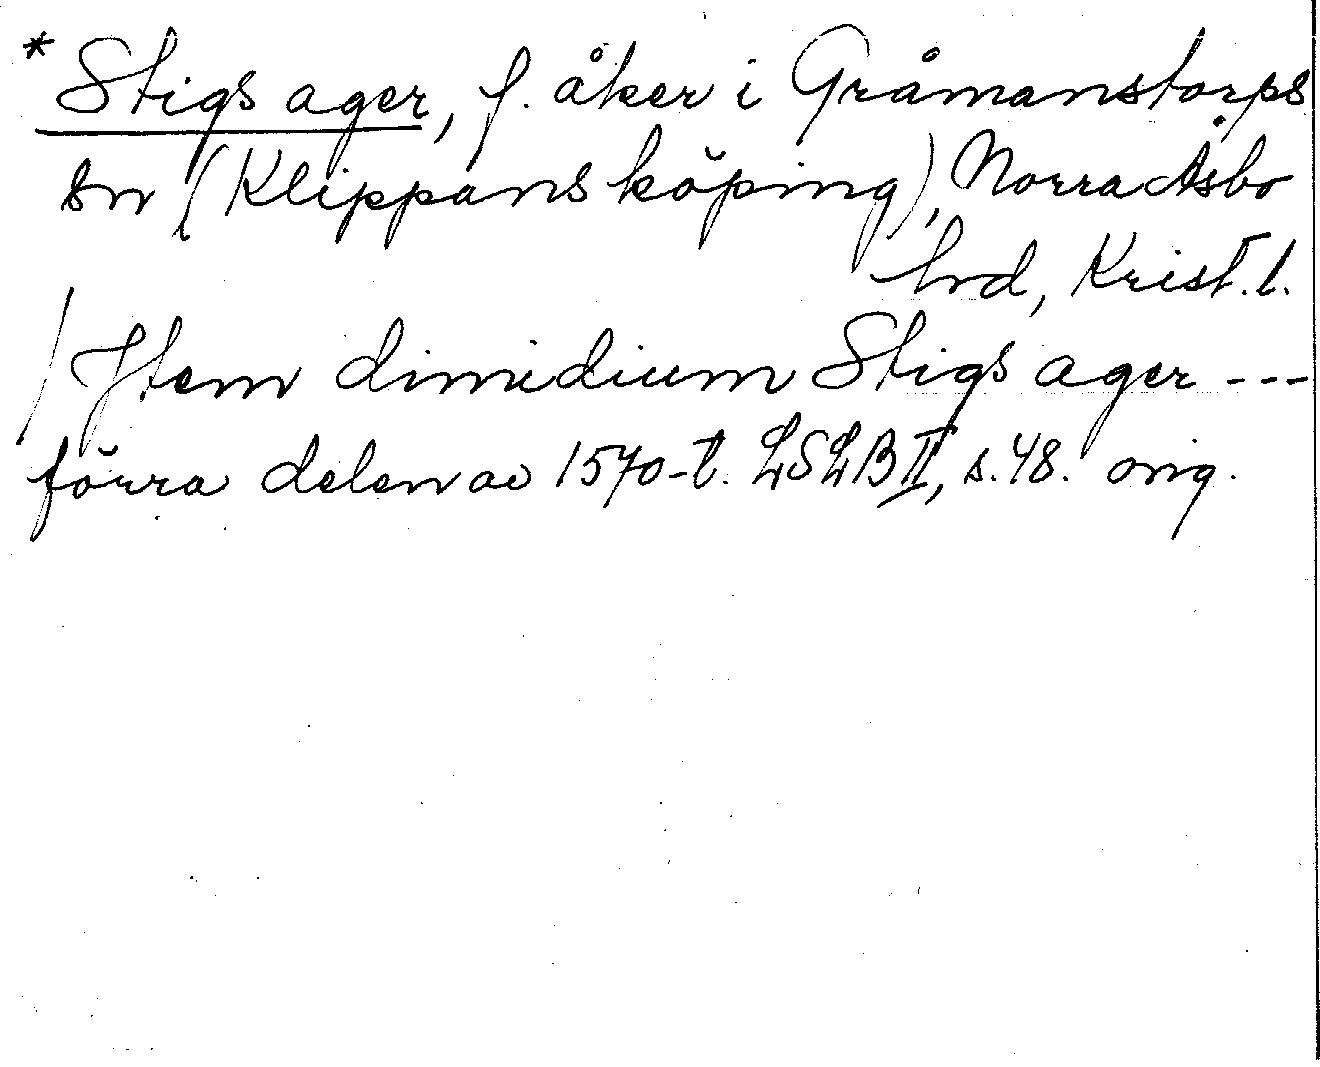 * Stigs ager, f. åker i Gråmanstorps
sn (Klippans köping), Norra Åsbo
hrd, Krist. l.
/ Jtem dimidium Stigs ager ---
förra delen av 1570-t. LSLB II, s. 48. orig.